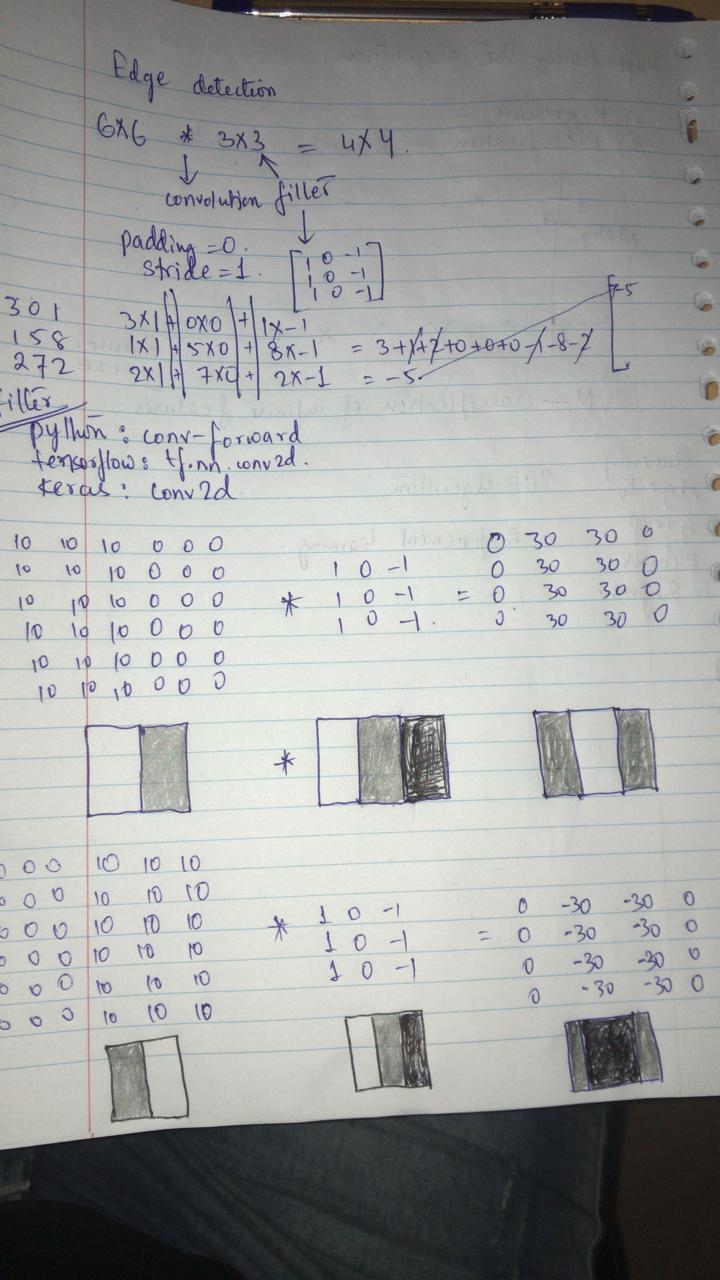 Edge detection
6X6 * 3X3 = 4X4.
convolution filter
padding = 0.
stride = 1.
1 0 -1
1 0 -1
1 0 -1
3 0 1 3X1 + 0X0 + 1X-1 -5
1 5 8 1X1 + 5X0 + 8X-1 = 3+1+2+0+0+0-1-8-2
2 7 2 2X1 + 7X0 + 2X-1 = -5.
filter
python : conv-forward
tensorflow : tf.nn.conv2d.
Keras : conv2d
10 10 10 0 0 0 0 30 30 0
10 10 10 0 0 0 1 0 -1 0 30 30 0
10 10 10 0 0 0 * 1 0 -1 = 0 30 30 0
10 10 10 0 0 0 1 0 -1. 0 30 30 0
10 10 10 0 0 0
10 10 10 0 0 0
*
0 0 0 10 10 10
0 0 0 10 10 10 1 0 -1 0 -30 -30 0
0 0 0 10 10 10 * 1 0 -1 = 0 -30 -30 0
0 0 0 10 10 10 1 0 -1 0 -30 -30 0
0 0 0 10 10 10 0 -30 -30 0
0 0 0 10 10 10